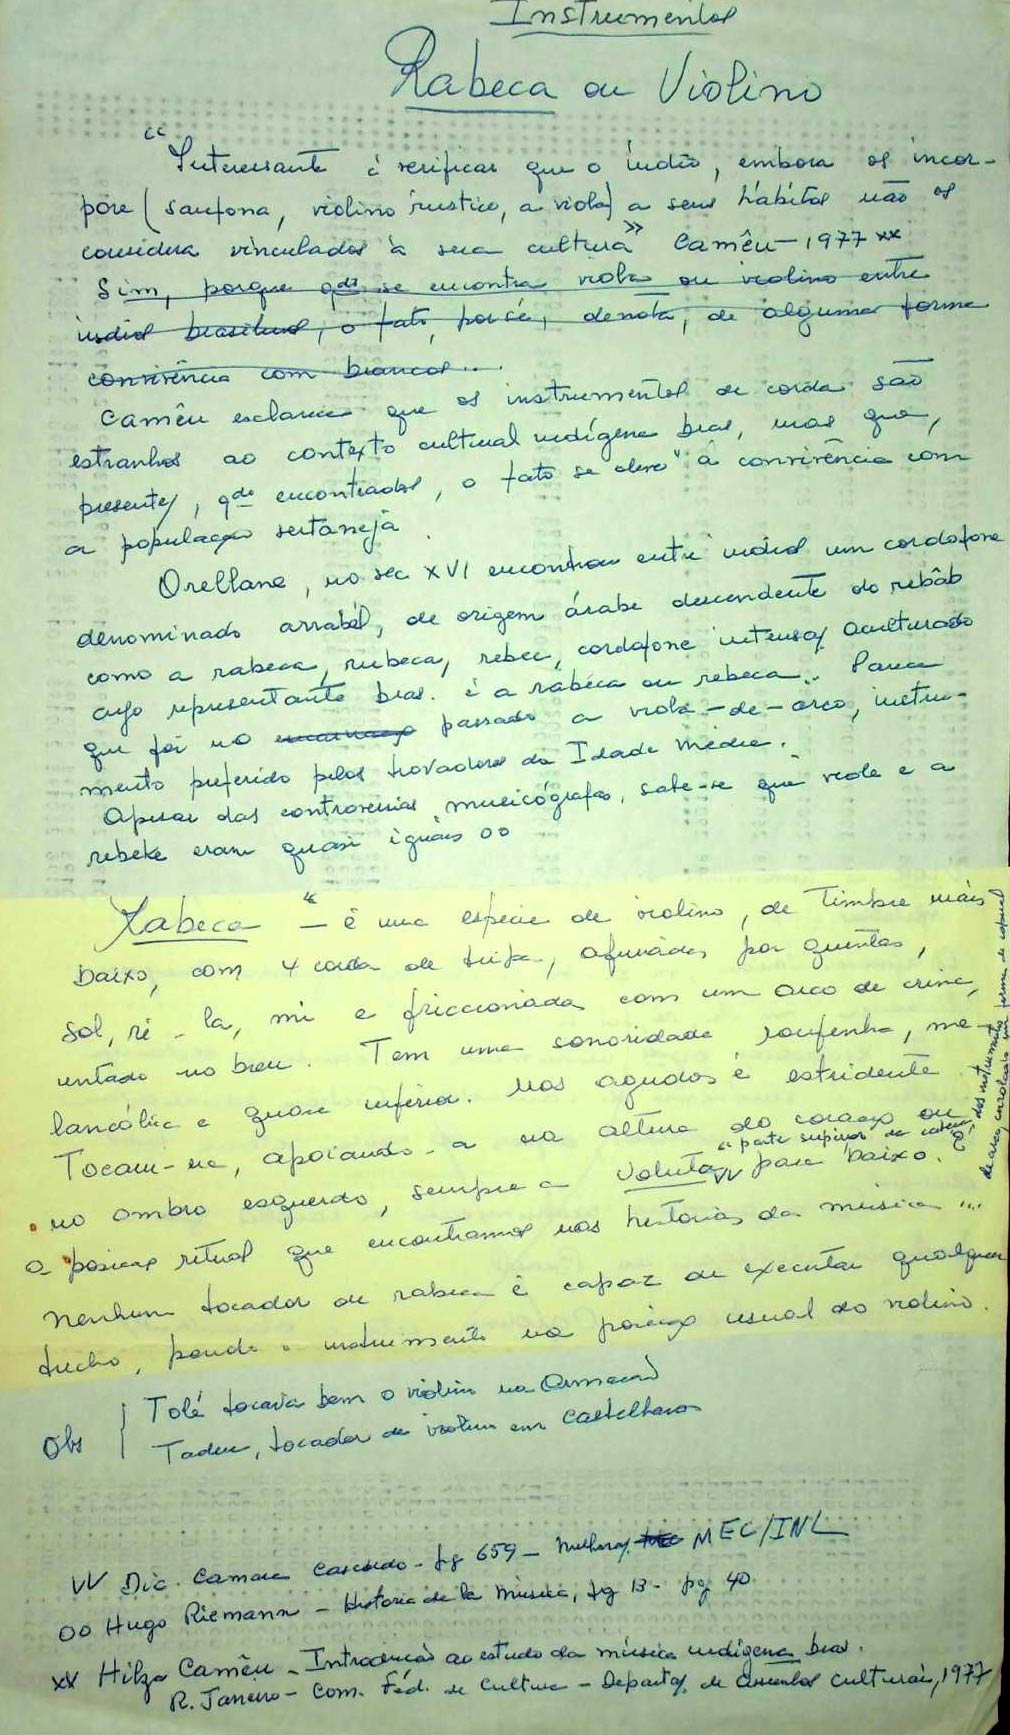 Instrumentos
Rabeca ou Violino
"Interessante é verificar que o índio, embora os incor-
pore (sanfona, violino rústico, a viola) a seus hábitos não os
considera vinculados à sua cultura" Camêu - 1977 xx
Sim, porque qdo se encontra viola ou violino entre
índios brasileiros, o fato, por si, denota, de alguma forma
convivência com brancos...
Camêu esclarece que os instrumentos de corda são
estranhos ao contexto cultural indígena bras, mas que,
presentes, qdo encontrados, o fato se deve "à convivência com
a população sertaneja
Orellana, no sec XVI encontrou entre índios um cordofone
denominado arrabél, de origem árabe descendente do rebâb
como a rabeca, rubeca, rebec, cordofone intensa/ aculturado
cujo representante bras. é a rabeca ou rebeca.. Parece
que foi no passado a viola-de-arco, instru-
mento preferido pelos trovadores da Idade média.
Apesar das controversias musicógrafas, sabe-se que viola e a
rebeke eram quasi iguais oo
Rabeca "- é uma espécie de violino, de timbre mais
baixo, com 4 cordas de tripa, afinadas por quintas,
sol, ré - la, mi e friccionada com um arco de crina,
untado no breu. Tem uma sonoridade roufenha, me-
lancólica e quase inferior. Nos agudos é estridente.
Tocam-na, apoiando-a na altura do coração ou
"parte superior da cabeça dos instrumentos de arco, enrolada em forma de espiral
no ombro esquerdo, sempre a voluta VV para baixo. É
a posição ritual que encontramos nas historias da música ...
Nenhum tocador de rabeca é capaz de executar qualquer
trecho, pondo o instrumento na posição usual do violino.
Obs Tolé tocava bem o violino na
Tadeu, tocador de violino em Castelhanos
VV Dic. Camara Cascudo - pg 659 - Melhora/. MEC/INL
oo Hugo Riemann - Historia de la Música, pg 13 - pg 40
xx Hilza Camêu - Introdução ao estudo da música indígena bras.
R. Janeiro - Com. Féd. de Cultura - Departo/ de Assuntos Culturais, 1977